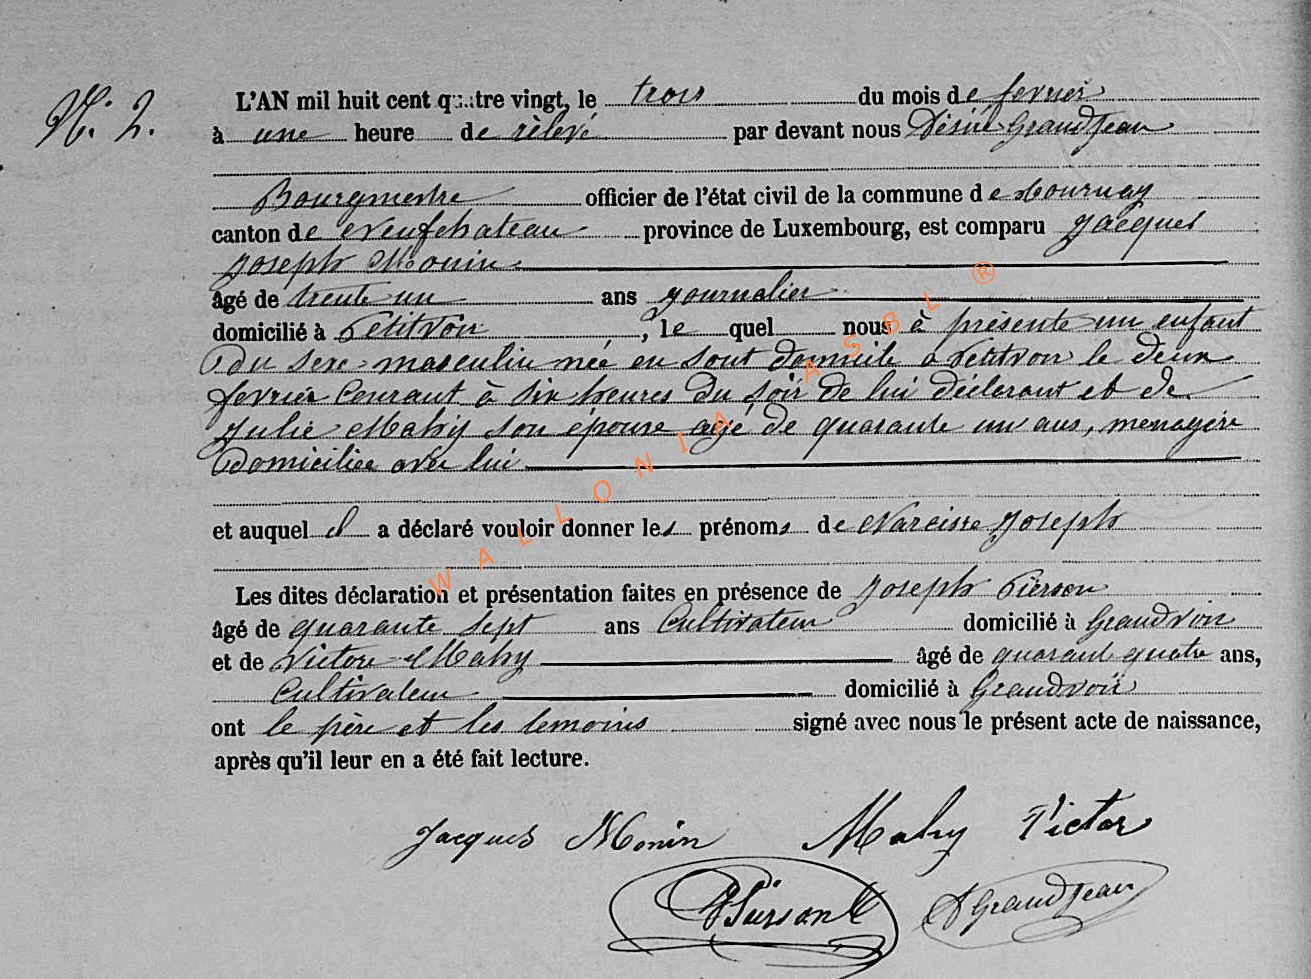 N°. 2.
L'AN mil huit cent quatre vingt, le trois du mois de fevrier
à une heure de rèlevé par devant nous Désiré Grandjean
Bourgmestre officier de l'état civil de la commune de Tournay
canton de Neufchateau province de Luxembourg, est comparu Jacques
Joseph Monin
âgé de trente un ans journalier
domicilié à Petitvoir, le quel nous à présenté un enfant
du sexe masculin née en sont domicile a Petitvoir le deux
fevrier Courant à six heures du soir de lui déclarant et de
Julie Mahy son épouse agé de quarante un ans, menagère
domiciliée avec lui
et auquel il a déclaré vouloir donner les prénoms de Narcisse Joseph
Les dites déclaration et présentation faites en présence de Joseph Pierson
âgé de quarante sept ans Cultivateur domicilié à Grandvoir
et de Victor Mahy âgé de quarant quatre ans,
Cultivateur domicilié à Grandvoir
ont le père et les temoins signé avec nous le présent acte de naissance,
après qu'il leur en a été fait lecture.
Jacques Monin Mahy Victor
JPierson D Grandjean
WALLONIA ASBL ®